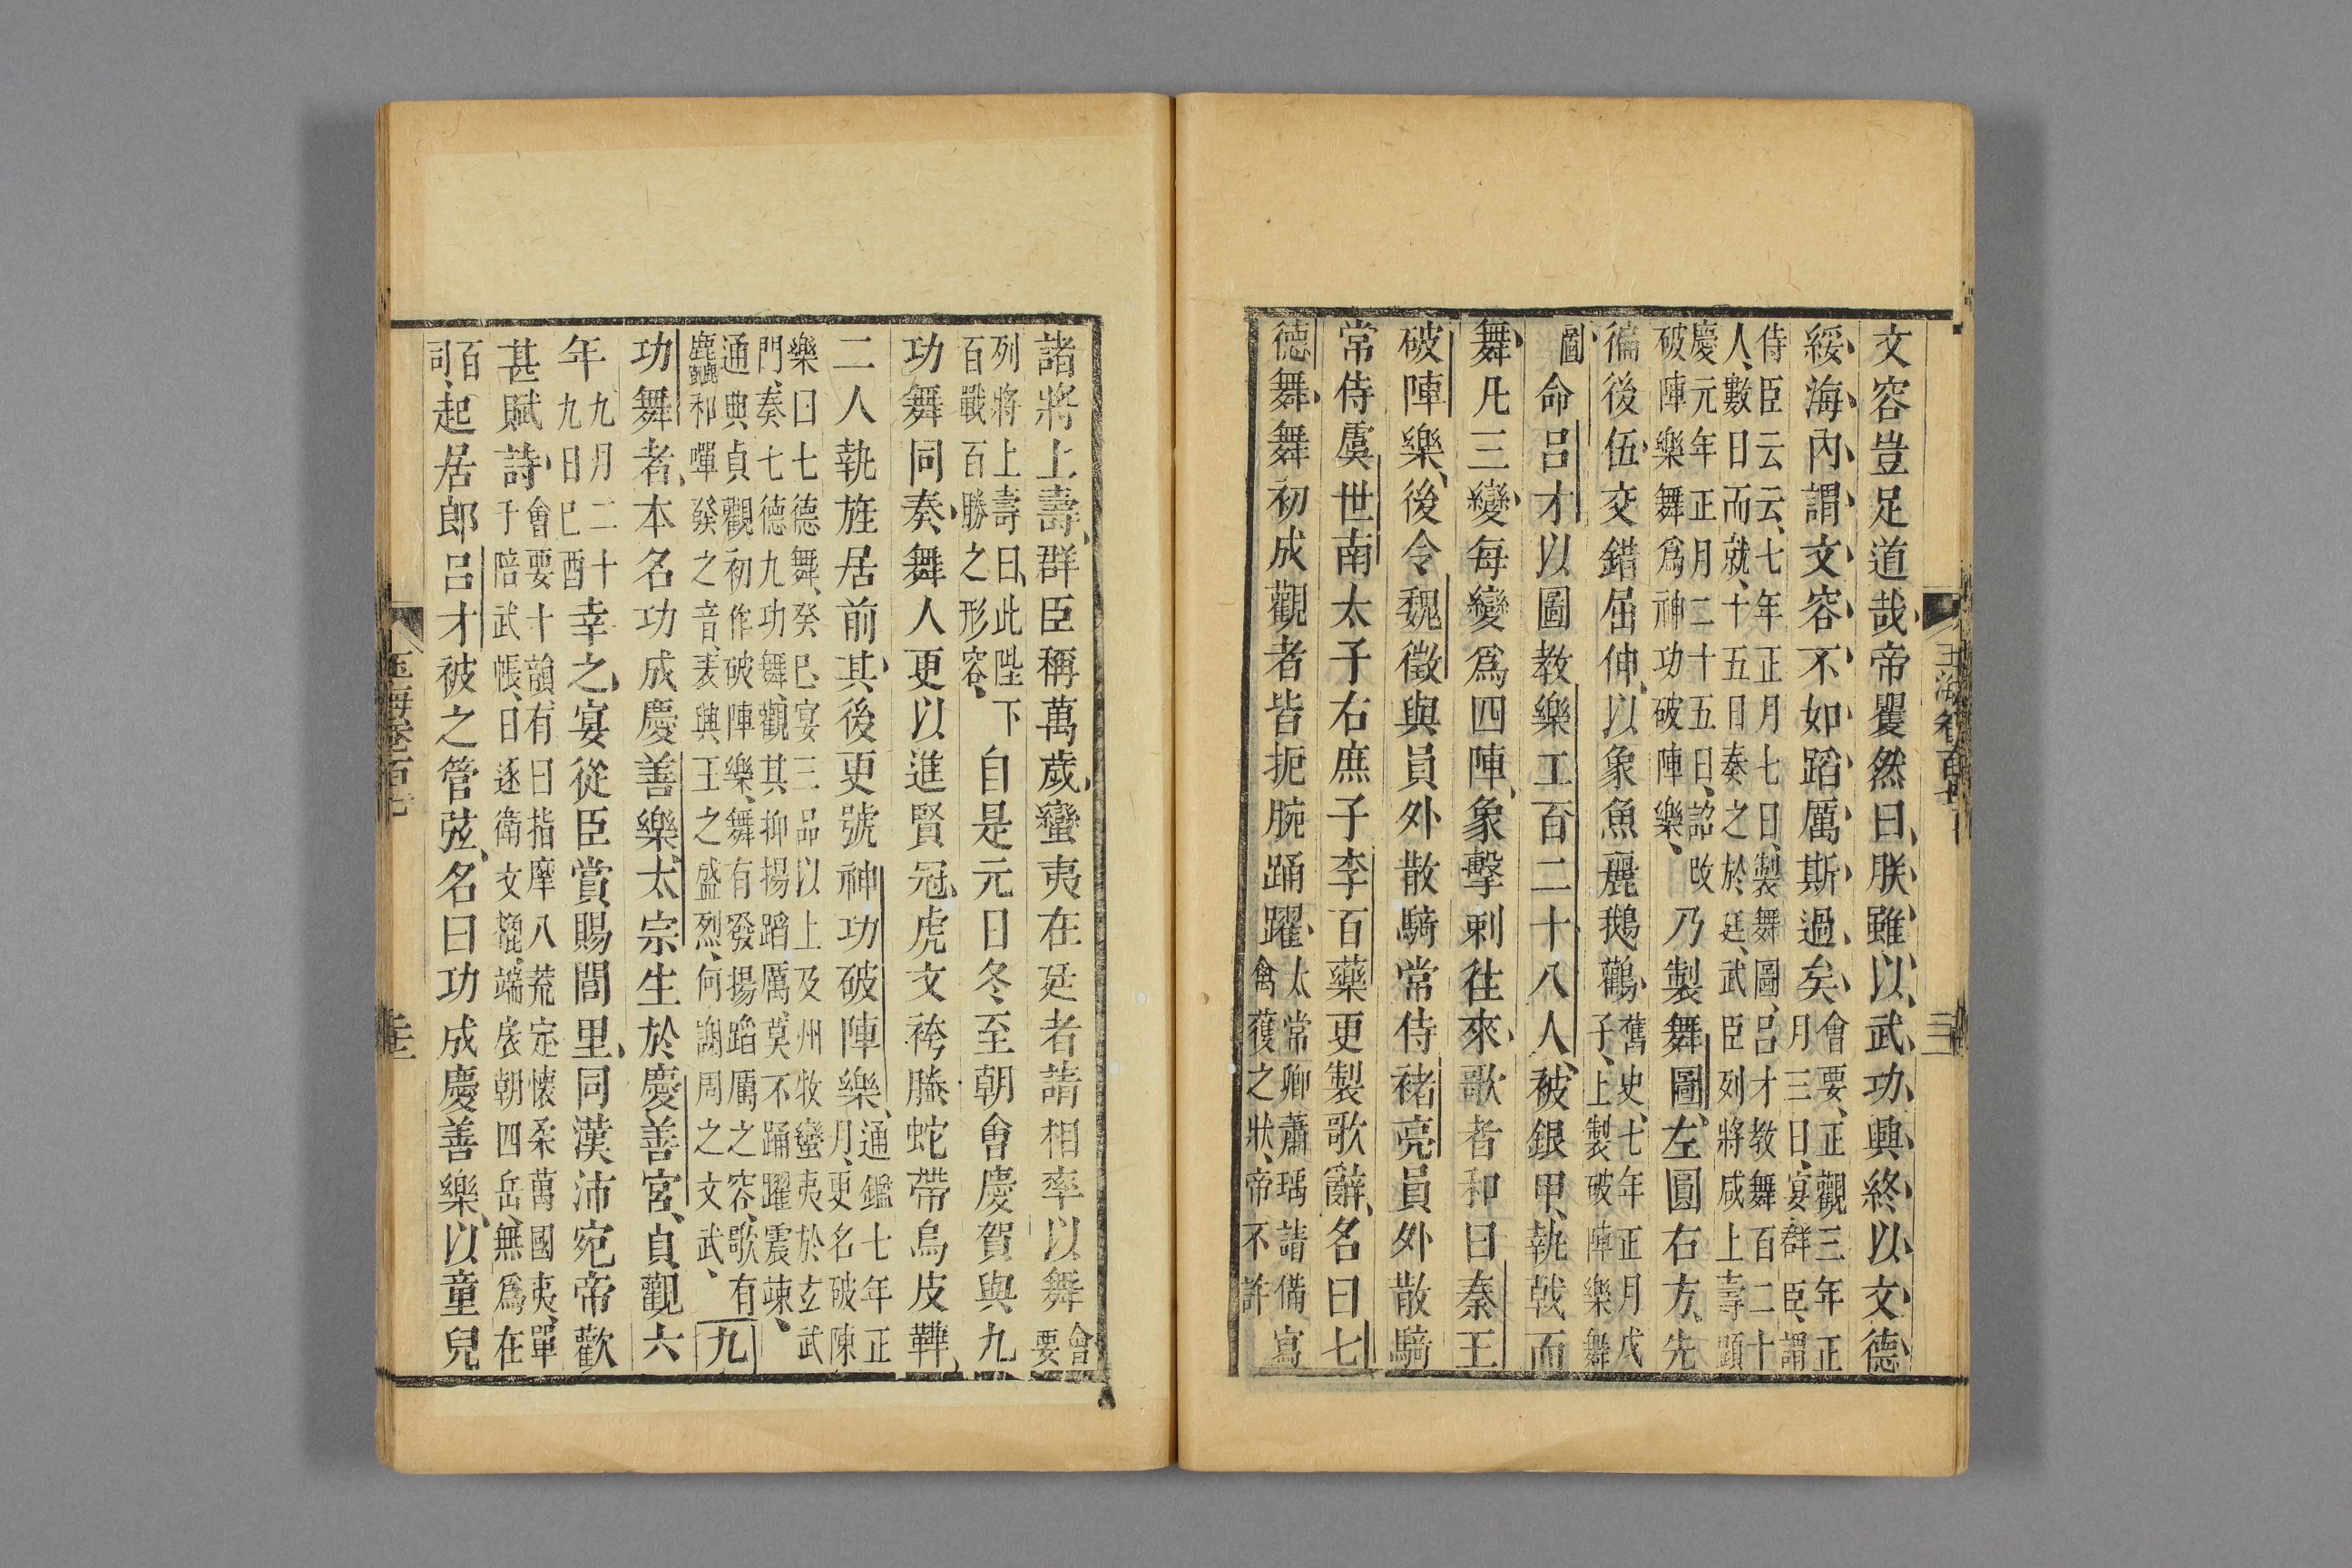 文容豈足道哉帝矍然曰朕雖以武功興終以文德
綏海內謂文容不如蹈厲斯過矣會要正觀三年正
月三日宴群臣謂
侍臣云云七年正月七日製舞圖呂才教舞百二十
人數日而就十五日奏之於廷武臣列將咸上壽顕
慶元年正月二十五日詔改
破陣樂舞爲神功破陣樂乃製舞圖左圓右方先
徧後伍交錯屈伸以象魚麗鵝鸛舊史七年正月戊
子上製破陣樂舞
圖命呂才以圖教樂工百二十八人被銀甲執戟而
舞凡三變每變爲四陣象擊刺往來歌者和曰秦王
破陣樂後令魏徵與員外散騎常侍褚亮員外散騎
常侍虞世南太子右庶子李百藥更製歌辭名曰七
德舞舞初成觀者皆扼腕踊躍太常卿蕭瑀請備寫
禽獲之狀帝不許
諸將上壽群臣稱萬歲蠻夷在廷者請相率以舞會
要
列將上壽曰此陛下
百戰百勝之形容自是元日冬至朝會慶賀與九
功舞同奏舞人更以進賢冠虎文袴螣蛇帶烏皮鞾
二人執旌居前其後更號神功破陣樂通鑑七年正
月更名破陳
樂曰七德舞癸巳宴三品以上及州牧蠻夷於玄武
門奏七德九功舞觀其抑揚蹈厲莫不踊躍震竦
通典貞觀初作破陣樂舞有發揚蹈厲之容歌有
麤和嘽發之音表興王之盛烈何謝周之文武九
功舞者本名功成慶善樂太宗生於慶善宮貞觀六
年九月二十
九日己酉幸之宴從臣賞賜閭里同漢沛宛帝歡
甚賦詩會要十韻有曰指麾八荒定懷柔萬國夷單
于陪武帳日逐衛文端扆朝四岳無爲在
百
司起居郎呂才被之管弦名曰功成慶善樂以童兒
玉海卷百七